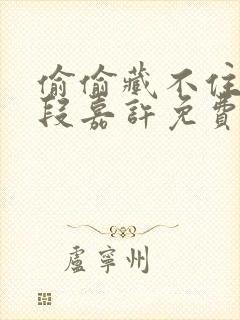 偷偷藏不住
段嘉許免費
盧寧州